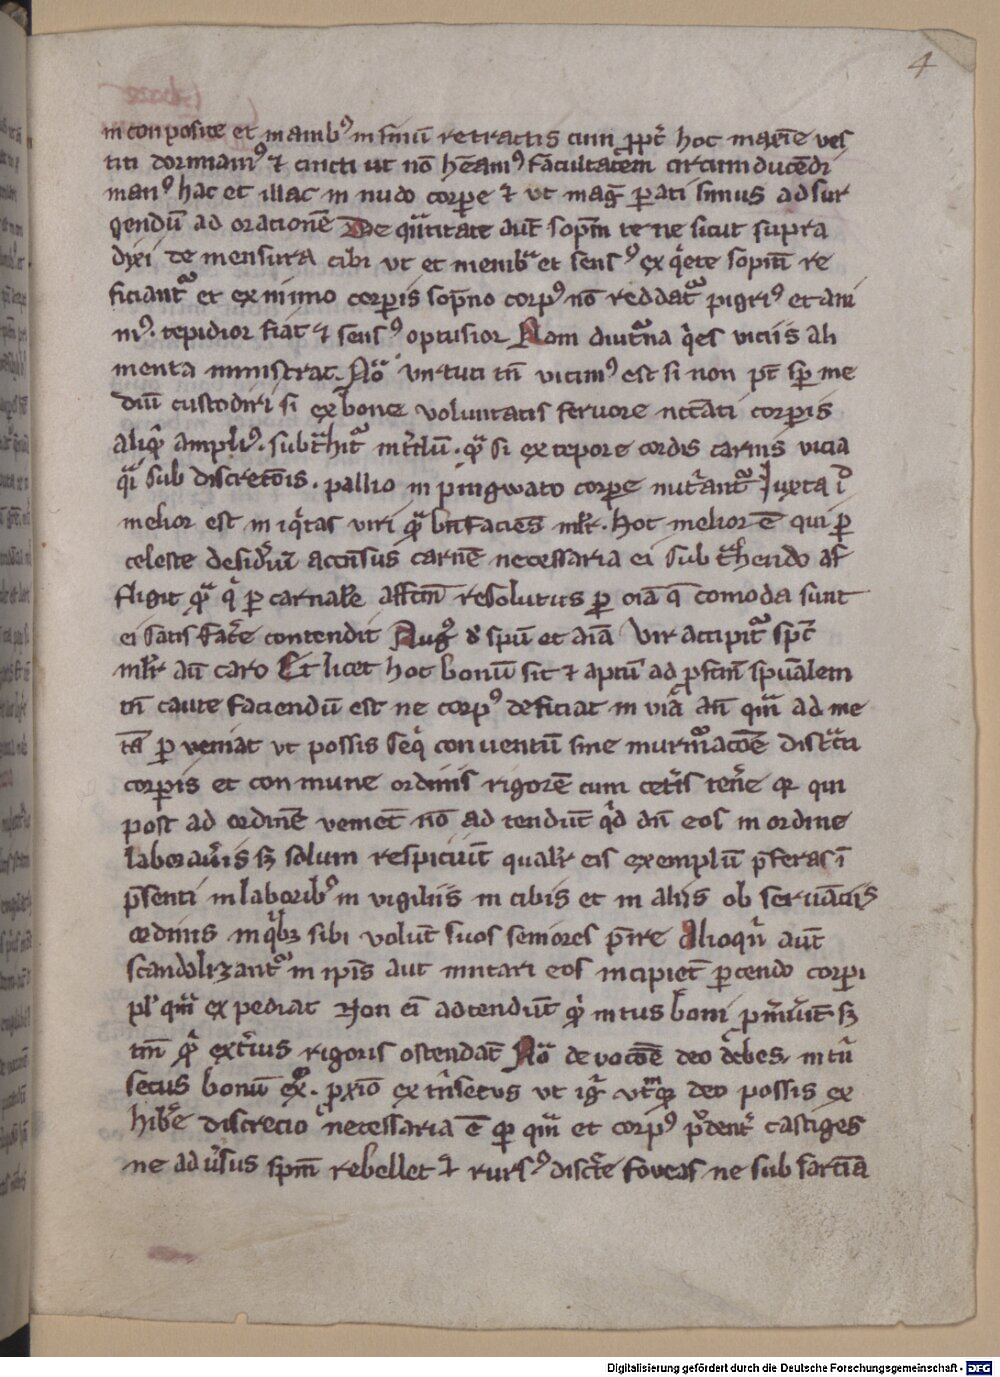 4
in conposite et manib9 in sinū retractis cum ppt̄ hoc maxīe ves
titi dormiam9 ⁊ cincti ut nō hēam9 facultatem circumducēdi
man9 hac et illac in nudo corpe ⁊ vt mag̅ pati simus ad sur
gendū ad orationē De q̄ntitate aut̄ sopm̄ te ne sicut supra
dixi de mensura cibi vt et membra et sens9 ex q̄ete sopm̄ re
ficiant᷑ et ex nimio corpis sopno corp9 nō reddat᷑ pigri9 et ani
m9 tepidior fiat ⁊ sens9 optusior Nam diut̄na q̄es viciis ali
menta ministrat. Nō virtuti tn̄ vicim9 est si non pt̄ sp me
diū custodiri si ex bone voluntatis fervore nc̄cati corpis
aliq̄ ampli9 subt̄hit᷑ int̄dū . q̄ si ex tepore cordis carnis vicia
q̄i sub discretōis . pallio in pingwato corpe nut̄ant᷑ Juxta id
melior est iniq̄tas viri q̄ bn̄faciens ml̄r . Hoc melior ē qui p
celeste desid̄iū accensus carnē necessaria ei subt̄hendo af
fligit q̄ q̄ p carnalē affc̄m resolutus p oīa q̄ comoda sunt
ei satisfac̄e contendit Aug9 ꝺ spū et aīa Vir accipit᷑ sp̄c
ml̄r aū caro Et licet hoc bonū sit ⁊ aptū ad pfc̄m spūalem
tn̄ caute faciendū est ne corp9 deficiat in via an̄ qm̄ ad me
tā p veniat vt possis seq̄ conuentū sine murmᵃcōe disc̄ta
corpis et conmune ordinis rigorē cum cet̄is ten̄e qr qui
post ad ordinē venient nō ad tendūt q̄d dn̄ eos in ordine
laboraūis sꝫ solum respiciūt qualr̄ eis exemplū p̄feras ī
p̄senti in laborib9 in vigiliis in cibis et in aliis ob seruāciis
ordinis in q̄bꝫ sibi volūt suos seniores p̄ire Alioqn̄ aut̄
scandalizant᷑ in ip̄is aut imitari eos incipiēt pcendo corpi
pl9 qm̄ expediat Non ei adtendūt q̄ intus boni pm̄iūt sꝫ
tm̄ q̄ ext̄ius rigoris ostendat Nō devocōe deo debes intⁱn
secus bonū ex . pxīo ext̄nsecus ut ig̅ vt̄mq̄ deo possis ex
hib̄e discrecio necessaria ē qr qm̄ et corp9 p̄dent̄ castiges
ne adūsus spm̄ rebellet ⁊ rurs9 disc̄te foveas ne sub sarcīa
Digitalisierung gefördert durch die Deutsche Forschungsgemeinschaft - DFG